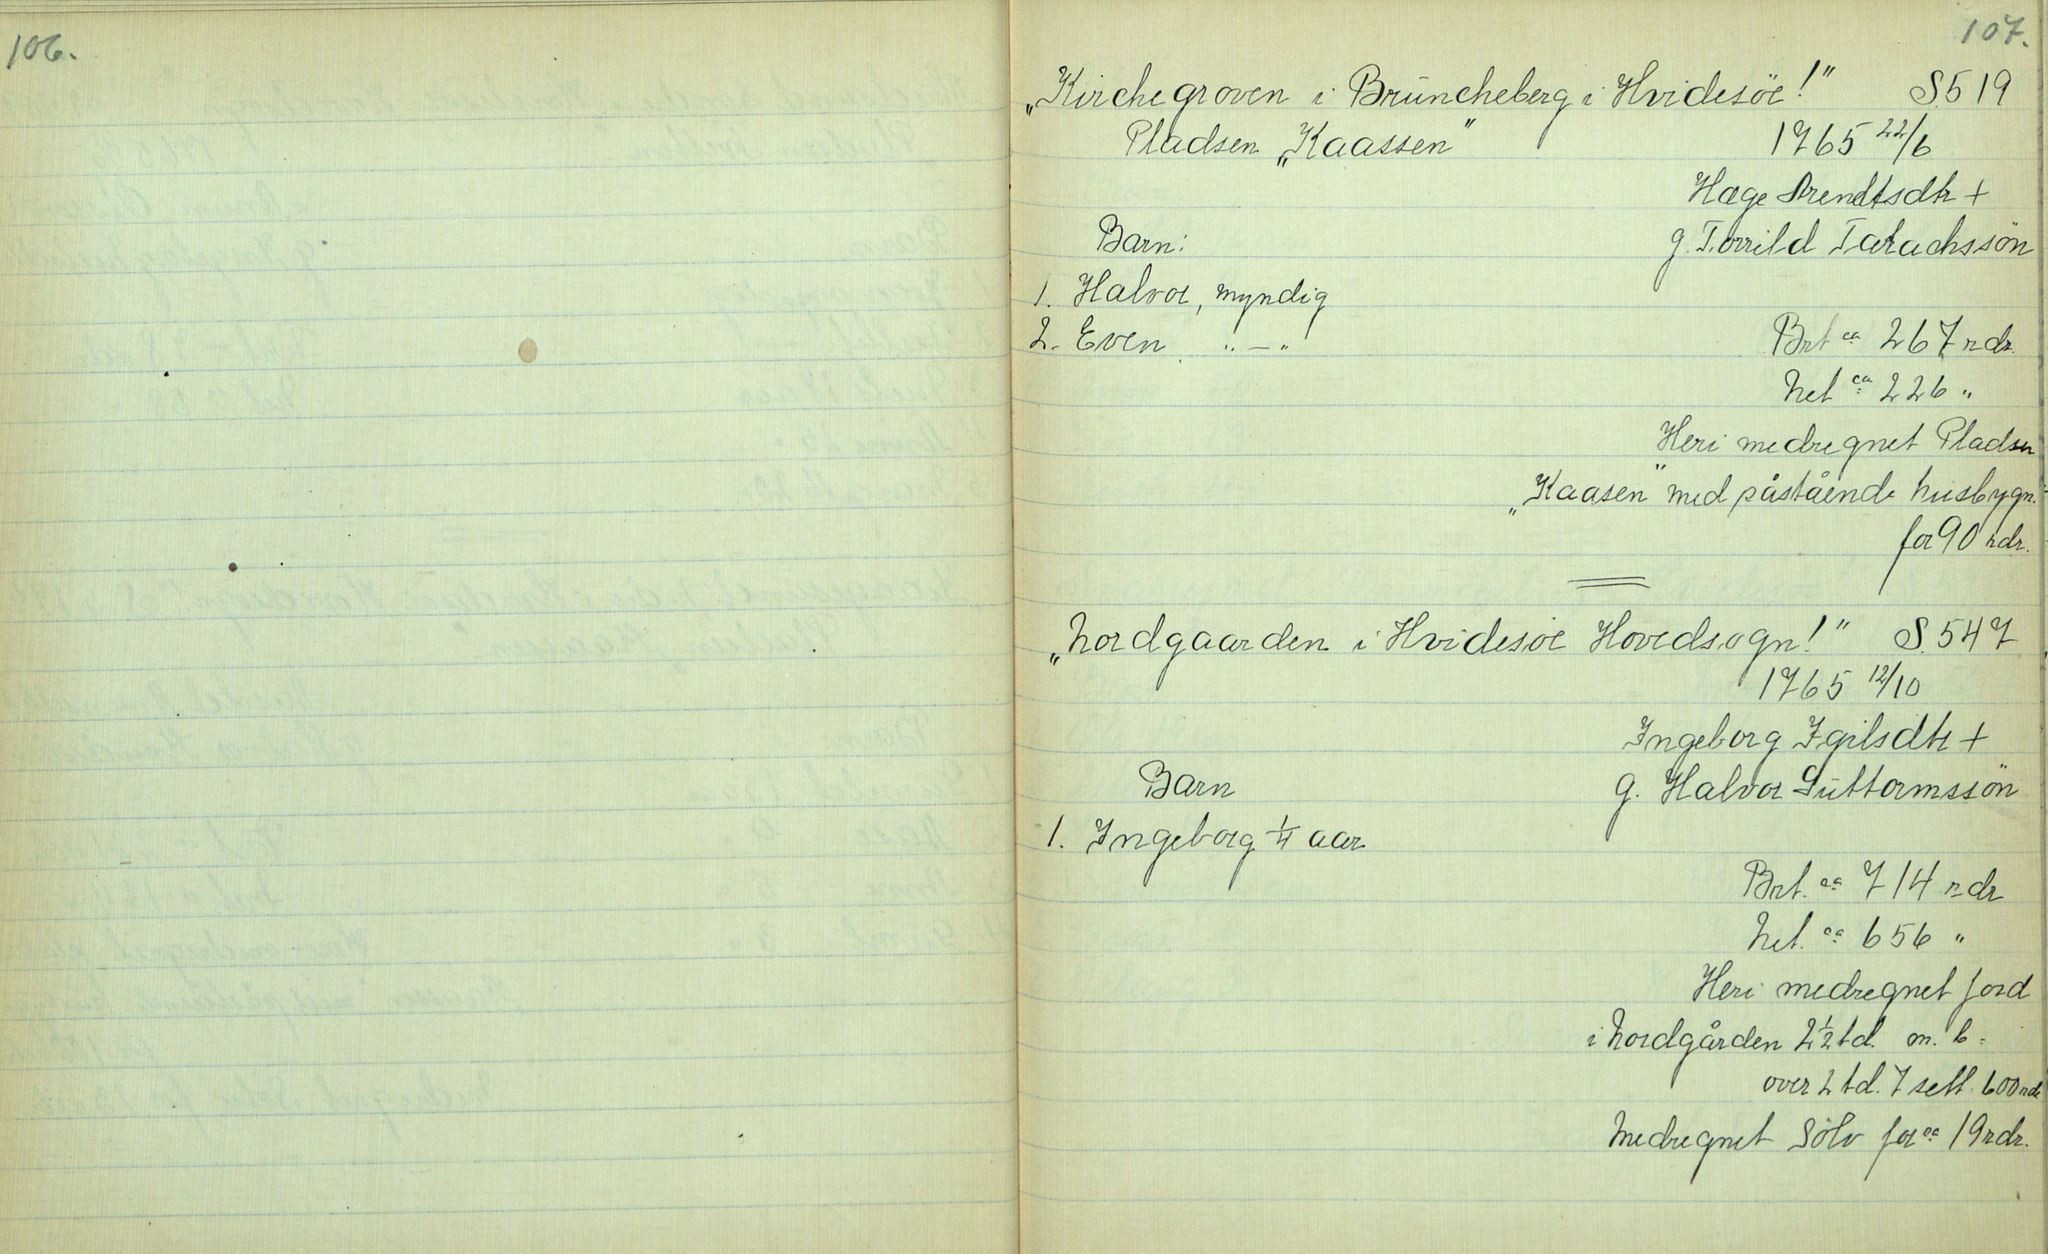 106.
107.
„Kirchegroven i Brüncheberg i Hvidesöe!" S.519
Pladsen „Kaassen" 1765 22/6
Hæge Arendtsdtr +
Barn: g. Torrild Tarachssön
1. Halvor, myndig
2. Even "—" Brt ca 267 rdr.
Net ca 226 "
Heri medregnet Pladsen
„Kaasen" med påstående husbygn.
for 90 rdr.
„Nordgaarden i Hvidesöe Hovedsogn!" S.547
1765 12/10
Ingeborg Igilsdtr +
Barn g. Halvor Guttormssön
1. Ingeborg 1/4 aar
Brt. ca 714 rdr
Net. ca 656 "
Heri medregnet jord
i Nordgården 2 1/2 td. m. b.
over 2 td. 7 sett. 600 rdr
Medregnet Sölv for ca 19 rdr.